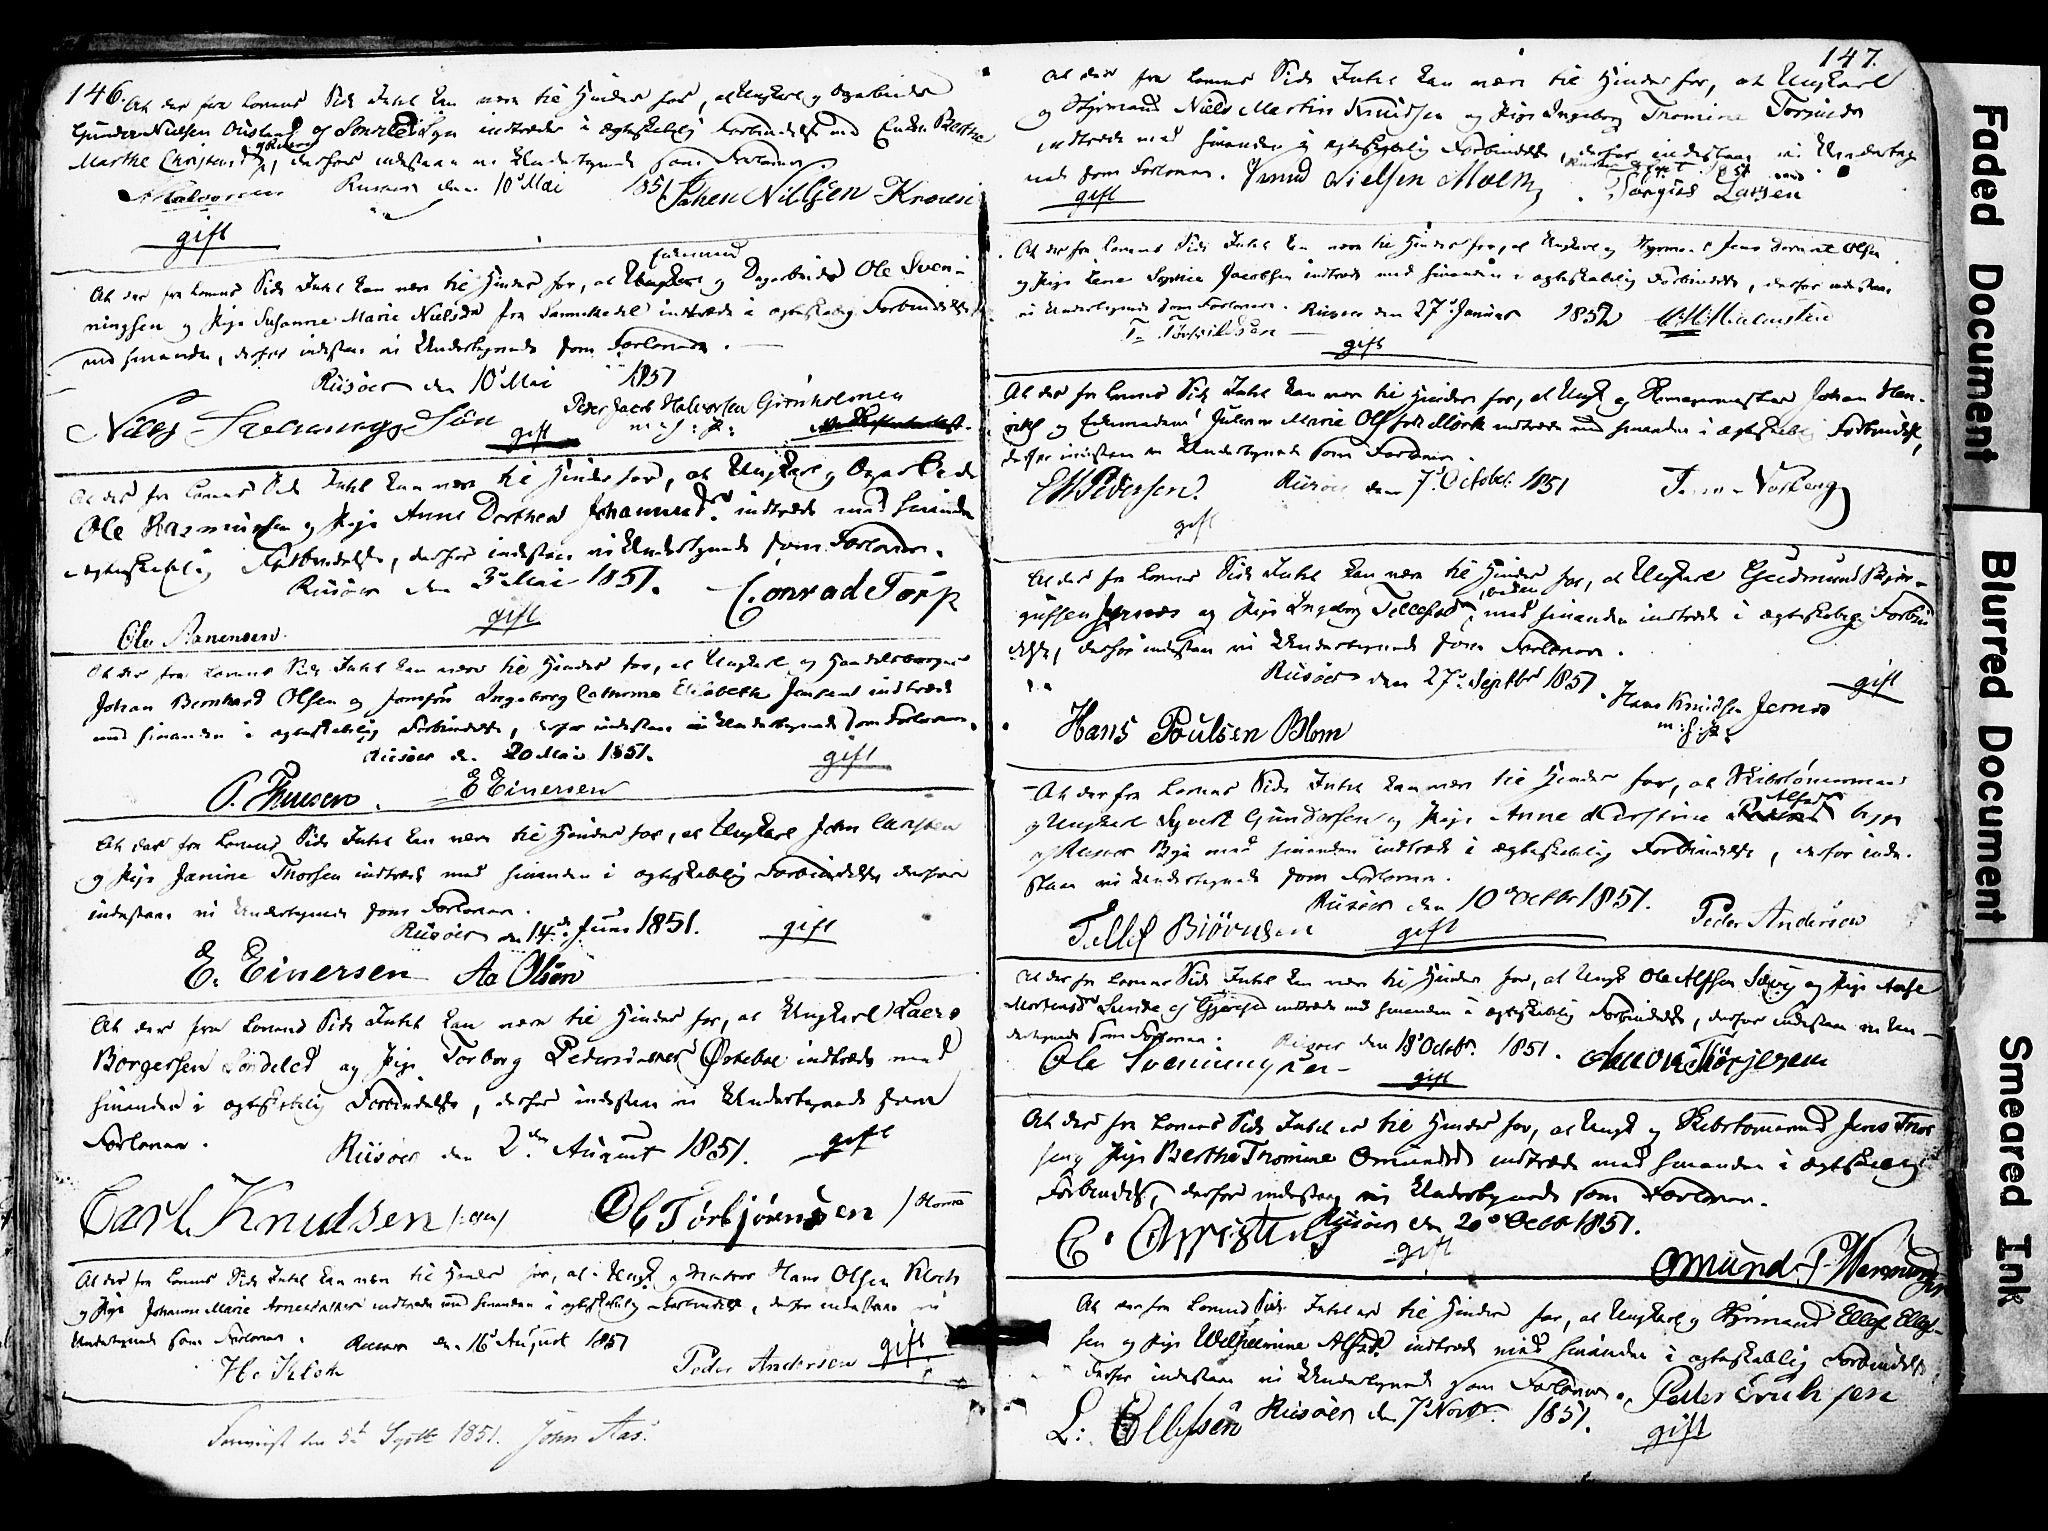 146.
At der fra Lovens Side Intet kan være til Hinder for, at Ungkarl og Dagarbeider
Gunder Nielsen af Søndeleds Sogn indtræder i ægteskabelig Forbindelse med Enken Berthe
Marthe Christensd derfor indestaae vi Undertegnede som Forlovere
Halvorsen Riisøer den 10 Mai 1851 Johen Nillsen
gift
At der fra Lovens Side Intet kan være til Hinder for, at og Dagarbeider Ole Sven-
ningsen og Pige Susanne Marie Nielsd fra indtræde i ægteskabelig Forbindelse
med hinanden, derfor indestaae vi Undertegnede som Forlovere.
Riisøer den 10 Mai 1851
Nills Peder Jacob Halvorsen
gift m: f: P:
At der fra Lovens Side Intet kan være til Hinder for, at Ungkarl og Dagarbeider
Ole Rasmussen og Pige Anne Dorthea Johannesd. indtræde med hinanden
i ægteskabelig Forbindelse, derfor indestaae vi Undertegnede som Forlovere.
Riisøer den 3 Mai 1851. Conrad Torp
gift
Ole
At der fra Lovens Side Intet kan være til Hinder for, at Ungkarl og Handelsborger
Johan Bernhard Olsen og Jomfru Ingeborg Elisabeth Jensen indtræde
med hinanden i ægteskabelig Forbindelse, derfor indestaae vi Undertegnede som Forlovere.
Riisøer den 20 Mai 1851. gift
E Einersen
At der fra Lovens Side Intet kan være til Hinder for, at Ungkarl John Carsten
og Pige Janine Thorsen indtræde med hinanden i ægteskabelig Forbindelse derfor
indestaae vi Undertegnede som Forlovere.
Riisøer den 14de Juni 1851. gift
E. Einersen Aa Olsen
At der fra Lovens Side Intet kan være til Hinder for, at Ungkarl Laers
Borgersen Søndeled og Pige Torborg Pedersdatter indtræde med
hinanden i ægteskabelig Forbindelse, derfor indestaae vi Undertegnede som
Forlovere.
Riisøer den 2den August 1851. gift
Carl Knudsen Ol Torbjørnsen
At der fra Lovens Side Intet kan være til Hinder for, at Ungk og Hans Olsen Kloch
og Pige Johanne Marie indtræde med hinanden i ægteskabelig Forbindelse, derfor indestaae vi
Undertegnede som Forlovere. Riisøer den 16 August 1851
H. Kloch Peder Andersen gift
den 5te Septb 1851. John Aas.
147.
At der fra Lovens Side Intet kan være til Hinder for, at Ungkarl
og Styrmand Niels Martin Knudsen og Pige Ingeborg Thomine
indtræde med hinanden i ægteskabelig Forbindelse, derfor indestaae vi Underteg
nede som Forlovere. Knud Nielsen Larsen
gift
At der fra Lovens Side Intet kan være til Hinder for, at Ungkarl og Styrmand Jens Olsen
og Pige Lene Jacobsen indtræde med hinanden i ægteskabelig Forbindelse, derfor indestaae
vi Undertegnede som Forlovere. Riisøer den 27 Januar 1852
gift
At der fra Lovens Side Intet kan være til Hinder for, at Ungk og Johan Hen-
rik og Juliane Marie indtræde med hinanden i ægteskabelig Forbindelse,
derfor indestaae vi Undertegnede som Forlovere.
E H Pedersen Riisøer den 7 October 1851
gift
At der fra Lovens Side Intet kan være til Hinder for, at Ungkarl Gudmund Bjør-
gufsen Jernæs og Pige Ingeborg Tellefsd med hinanden indtræde i ægteskabelig Forbin
delse, derfor indestaae vi Undertegnede som Forlovere.
Riisøer den 27. Septbr 1851. gift
Hans Poulsen Blom Hans Knudsen Jernæs
m: f: P:
At der fra Lovens Side Intet kan være til Hinder for, at Skibstømmermand
og Ungkarl Syvert Gundersen og Pige Anne Kirstine
med hinanden indtræde i ægteskabelig Forbindelse, derfor inde-
staae vi Undertegnede som Forlovere.
Riisøer den 10 Octbr 1851.
Tellef Biørnsen gift Peder Andersen
At der fra Lovens Side Intet kan være til Hinder for, at Ungk Ole Alfsen og Pige
Mortensd Lunde af indtræde med hinanden i ægteskabelig Forbindelse, derfor indestaae vi Un-
dertegnede som Forlovere. Riisøer den 18 Octbr. 1851.
Ole Svenningsen gift
At der fra Lovens Side Intet er til Hinder for, at Ungk og Skibstømmermand Jens Thor
sen og Pige Berthe Thomine Omundsd indtræde med hinanden i ægteskabelig
Forbindelse, derfor indestaae vi Undertegnede som Forlovere.
Riisøer den 20 Octbr 1851.
gift
At der fra Lovens Side Intet er til Hinder for, at Ungkarl og Styrmand Ellef Ellef-
sen og Pige Wilhelmine Alfsd. indtræde med hinanden i ægteskabelig Forbindelse
derfor indestaae vi Undertegnede som Forlovere. Peder Erichsen
L: Ellefsen Riisøer den 7 Novbr. 1851. gift
Faded Document
Blurred Document
Smeared Ink